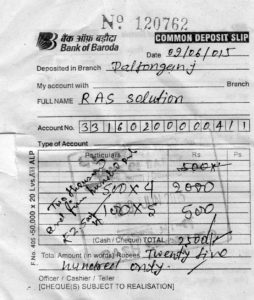 Nº 120762
बैंक ऑफ़ बड़ौदा
Bank of Baroda
COMMON DEPOSIT SLIP
Date 02/06/015
Deposited in Branch Daltonganj
My account with Branch
FULL NAME RAS solution
Account No. 33160200000411
Type of Account
Particulars Rs. Ps
500 X 4 2000
100 X 5 500
(Cash / Cheque) TOTAL 2500/-
Total Amount (in words) Rupees Twenty five
hundred only.
Officer / Cashier / Teller
[CHEQUE(S) SUBJECT TO REALISATION]